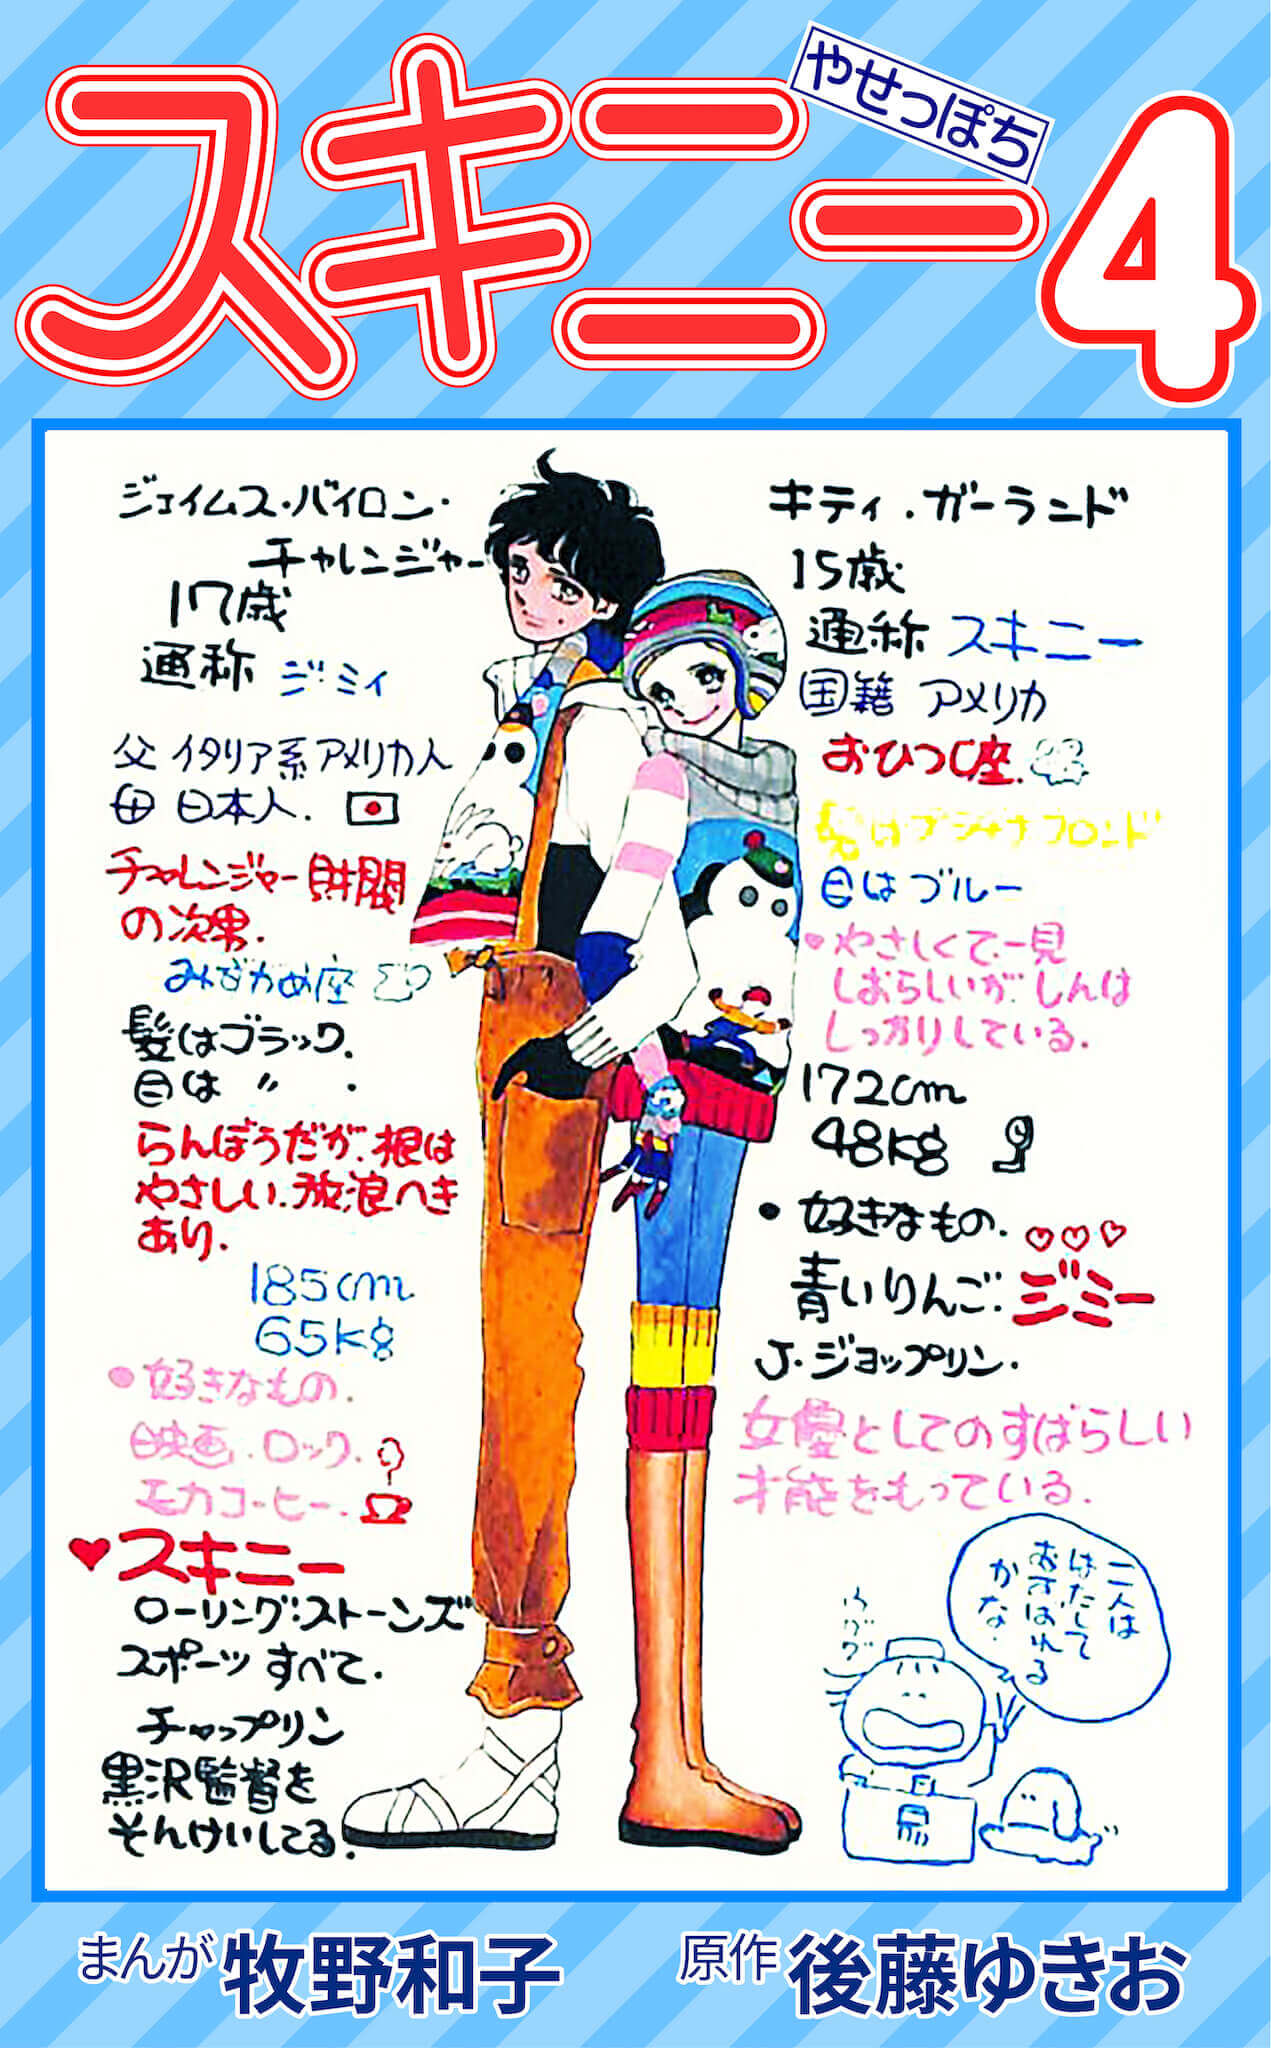 スキニー
やせっぽち
4
ジェイムス・バイロン・
チャレンジャー
17歳
通称 ジミィ
父 イタリア系アメリカ人
母 日本人.
チャレンジャー財閥
の次男.
みずがめ座
髪はブラック.
目は 〃 .
らんぼうだが.根は
やさしい.放浪へき
あり.
185cm
65kg
•好きなもの.
映画.ロック.
モカコーヒー.
♥スキニー
ローリング・ストーンズ
スポーツ すべて.
チャップリン
黒沢監督を
そんけいしてる.
キティ.ガーランド
15歳
通称 スキニー
国籍 アメリカ
おひつじ座.
髪はプラチナブロンド
目はブルー
•やさしくて一見
しおらしいが.しんは
しっかりしている.
172cm
48kg
•好きなもの. ♡♡♡
青いりんご. ジミー
J・ジョップリン.
女優としてのすばらしい
才能をもっている.
二人は
はたして
むすばれる
かな.
まんが 牧野和子
原作 後藤ゆきお